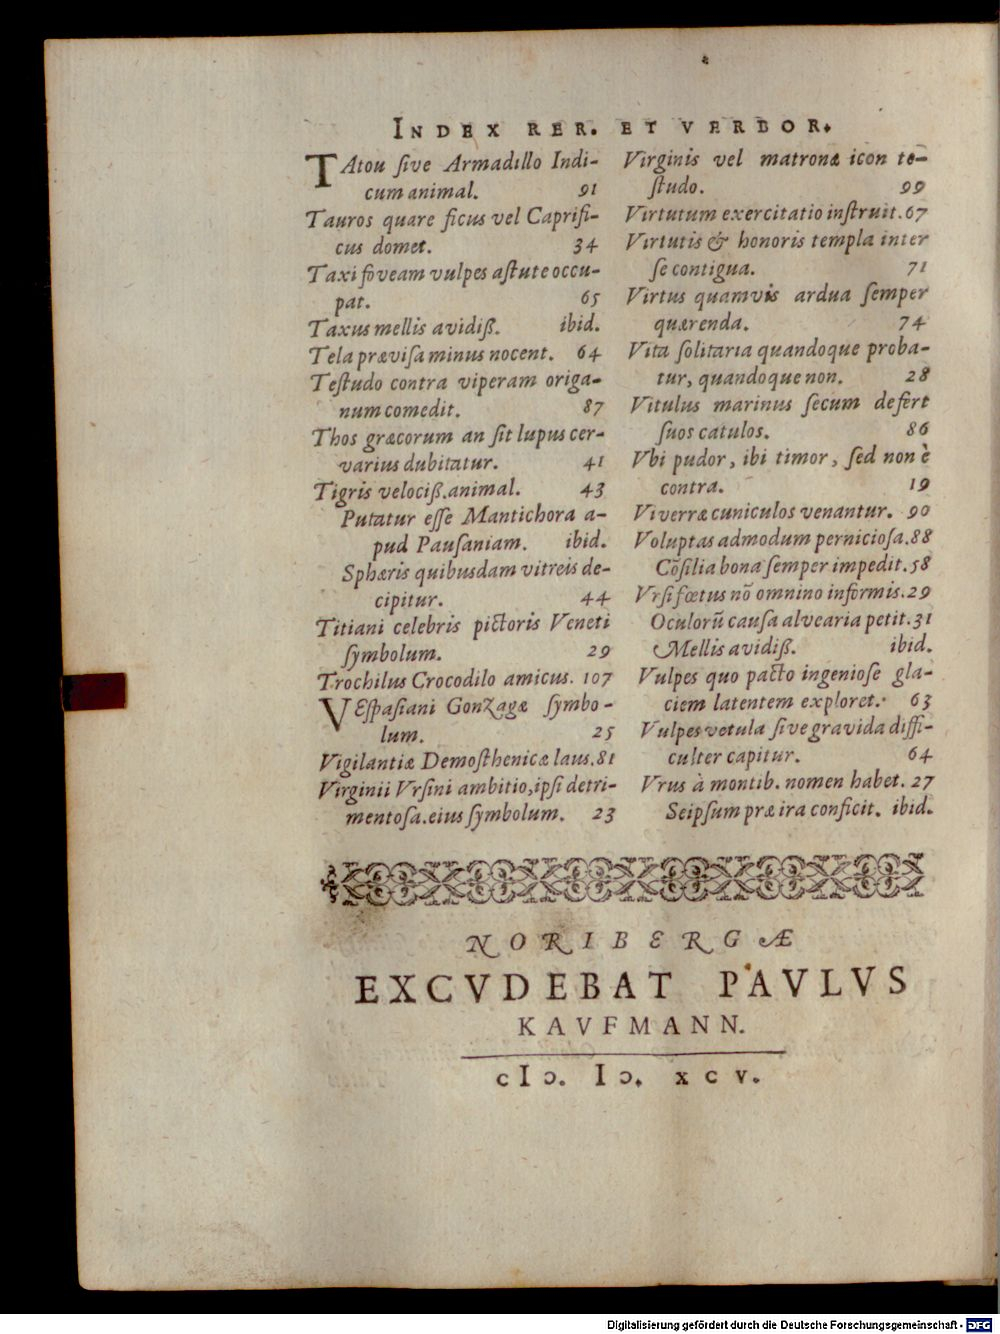 INDEX RER. ET VERBOR.
TAtou ſive Armadillo Indi-
cum animal. 91
Tauros quare ficus vel Caprifi-
cus domet. 34
Taxi foveam vulpes aſtute occu-
pat. 65
Taxus mellis avidiß. ibid.
Tela præviſa minus nocent. 64
Teſtudo contra viperam origa-
num comedit. 87
Thos græcorum an ſit lupus cer-
varius dubitatur. 41
Tigris velociß. animal. 43
Putatur eſſe Mantichora a-
pud Pauſaniam. ibid.
Sphæris quibusdam vitreis de-
cipitur. 44
Titiani celebris pictoris Veneti
ſymbolum. 29
Trochilus Crocodilo amicus. 107
VEſpaſiani Gonzagæ ſymbo-
lum. 25
Vigilantiæ Demoſthenicæ laus. 81
Virginii Vrſini ambitio, ipſi detri-
mentoſa. eius ſymbolum. 23
Virginis vel matronæ icon te-
ſtudo. 99
Virtutum exercitatio inſtruit. 67
Virtutis & honoris templa inter
ſe contigua. 71
Virtus quamvis ardua ſemper
quærenda. 74
Vita ſolitaria quandoque proba-
tur, quandoque non. 28
Vitulus marinus ſecum defert
ſuos catulos. 86
Vbi pudor, ibi timor, ſed non è
contra. 19
Viverræ cuniculos venantur. 90
Voluptas admodum pernicioſa. 88
Cōſilia bona ſemper impedit. 58
Vrſi fœtus nō omnino informis. 29
Oculorū cauſa alvearia petit. 31
Mellis avidiß. ibid.
Vulpes quo pacto ingenioſe gla-
ciem latentem exploret. 63
Vulpes vetula ſive gravida diffi-
culter capitur. 64
Vrus à montib. nomen habet. 27
Seipſum præ ira conficit. ibid.
NORIBERGÆ
EXCVDEBAT PAVLVS
KAVFMANN.
cIↄ. Iↄ. xcv.
Digitalisierung gefördert durch die Deutsche Forschungsgemeinschaft - DFG